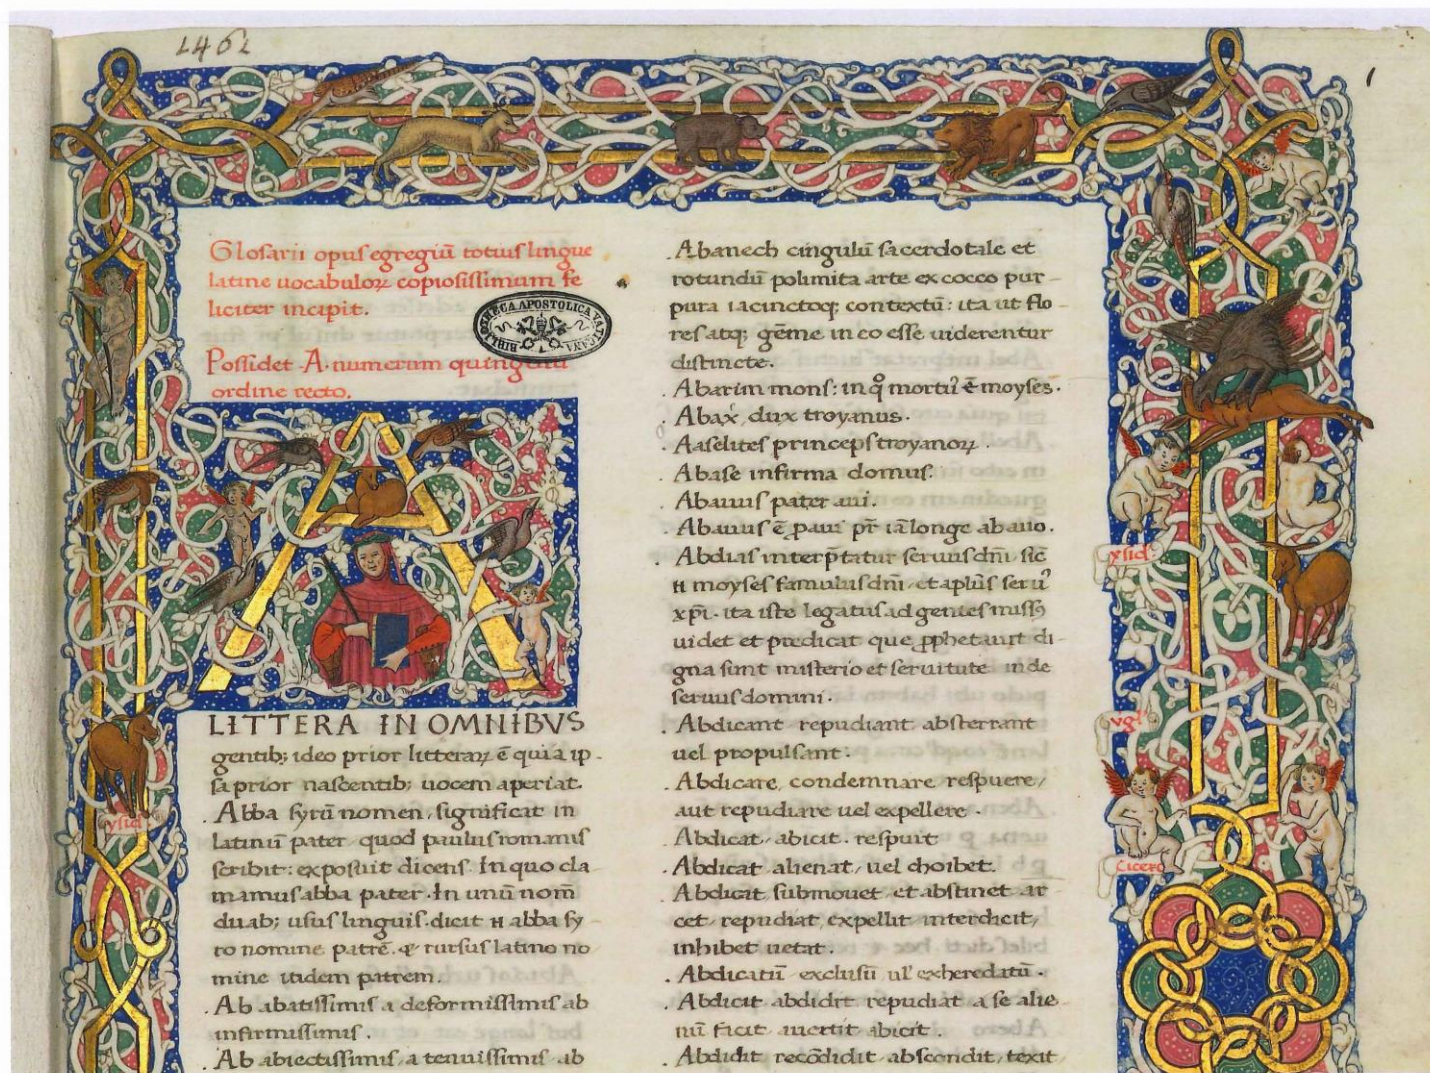 1462
1
Glosarii opus egregiū totius lingue
latine uocabuloꝝ copiosissimum fe
liciter incipit.
BIBLIOTHECA APOSTOLICA VATICANA
Possidet·A·numerum
ordine recto.
A
LITTERA IN OMNIBVS
gentib; ideo prior litteraꝝ ē quia ip-
sa prior nascentib; uocem aperiat.
Abba syrū nomen, significat in
latinū pater quod paulus romanis
scribit: exposuit dicens. In quo cla
mamus abba pater. In unū nom̄
duab; usus linguis. dicit н abba sy-
ro nomine patrē. & rursus latino no
mine itidem patrem.
.Ab abatissimis a deformissimis ab
infirmissimis.
.Ab abiectissimis, a tenuissimis ab
.Abanech cingulū sacerdotale et
rotundū polimita arte ex cocco pur-
pura iacinctoq; contextū: ita ut flo
res atq; gēme in eo esse uiderentur
distincte.
.Abarim mons: in q̊ mortuꝰ ē moyses.
.Abax, dux troyanus.
.Aaselites princeps troyanoꝝ.
.Abase infirma domus.
.Abauus pater aui.
.Abauus ē ꝓaui pr̄ iā longe ab auo.
.Abdias interp̄tatur seruus dn̄i sic̄
н moyses famulus dn̄i et apl̄us seruꝰ
xp̄i. ita iste legatus ad gentes missꝰ
uidet et predicat que ꝓphetauit di-
gna sunt misterio et seruitute inde
seruus domini.
.Abdicant repudiant absterrant
uel propulsant.
.Abdicare, condemnare respuere,
aut repudiare uel expellere.
.Abdicat abicit respuit
.Abdicat alienat, uel choibet.
.Abdicat submouet et abstinet ar
cet repudiat expellit interdicit,
inhibet uetat.
.Abdicatū exclusū ul̓ exheredatū.
.Abdicit abdidit repudiat a se alie
nū facit auertit abicit.
.Abdidit recōdidit abscondit, texit
ysid.
ysid.
ugl.
cicero